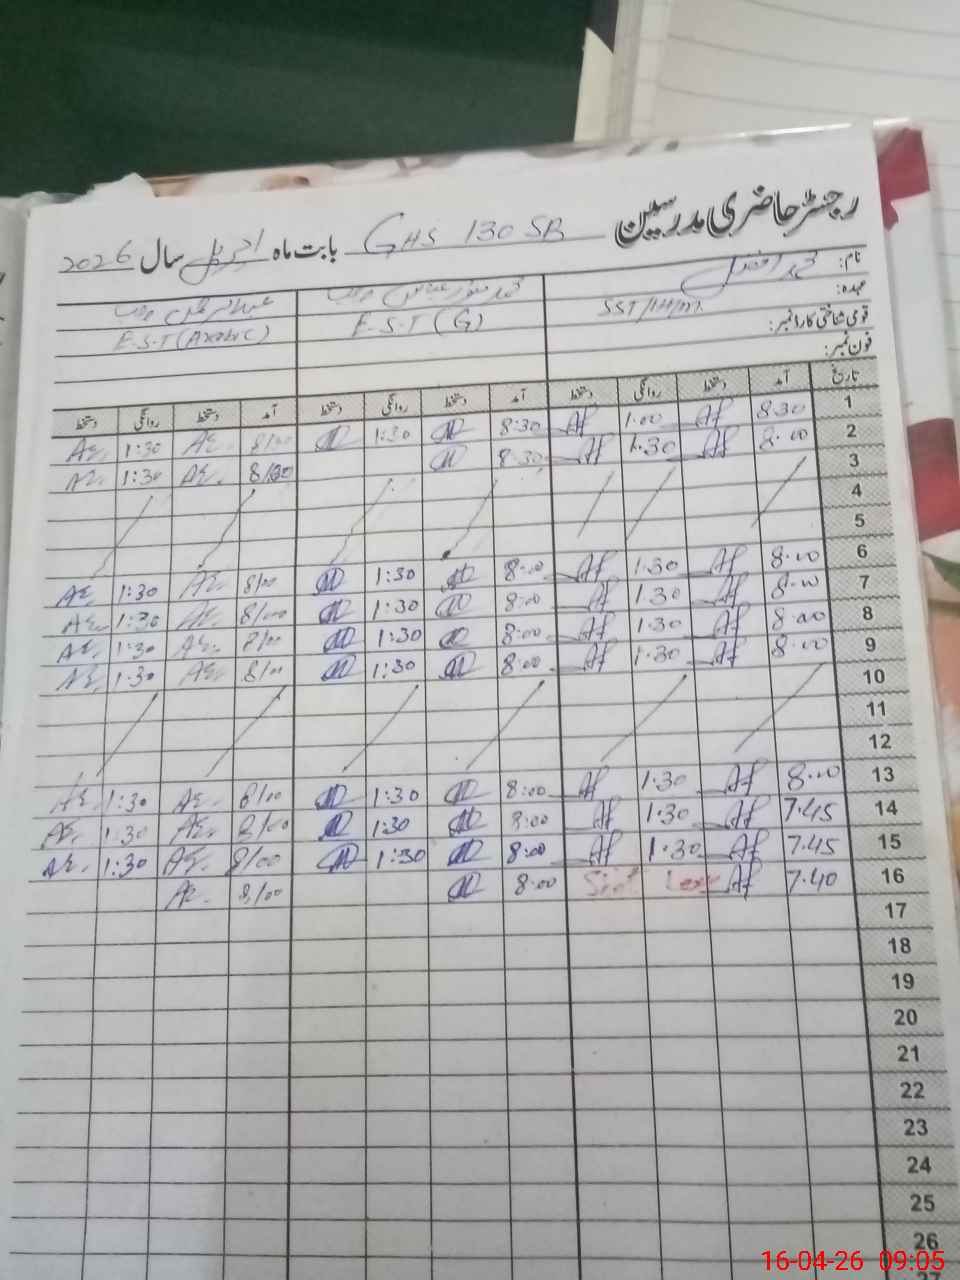 رجسٹر حاضری مدرسین GHS 130 SB بابت ماہ اپریل سال 2026
نام: محمد افضل
عہدہ: SST/IH/M E-S-T (G) E-S-T (Arabic)
قومی شناختی کارڈ نمبر:
فون نمبر:
تاریخ آمد دستخط روانگی دستخط آمد دستخط روانگی دستخط آمد دستخط روانگی دستخط
1 8:30 Af 1:00 Af 8:30 1:30 8/00 AE 1:30 AE
2 8:00 Af 1:30 Af 8:30 8/30 AE 1:30 AE
3
4
5
6 8:00 Af 1:30 Af 8:00 1:30 8/00 AE 1:30 AE
7 8:00 Af 1:30 Af 8:00 1:30 8/00 AE 1:30 AE
8 8:00 Af 1:30 Af 8:00 1:30 8/00 AE 1:30 AE
9 8:00 Af 1:30 Af 8:00 1:30 8/00 AE 1:30 AE
10
11
12
13 8:00 Af 1:30 Af 8:00 1:30 8/00 AE 1:30 AE
14 7:45 Af 1:30 Af 8:00 1:30 8/00 AE 1:30 AE
15 7:45 Af 1:30 Af 8:00 1:30 8/00 AE 1:30 AE
16 7:40 Af 8:00 8/00 AE
17
18
19
20
21
22
23
24
25
26
27
16-04-26 09:05